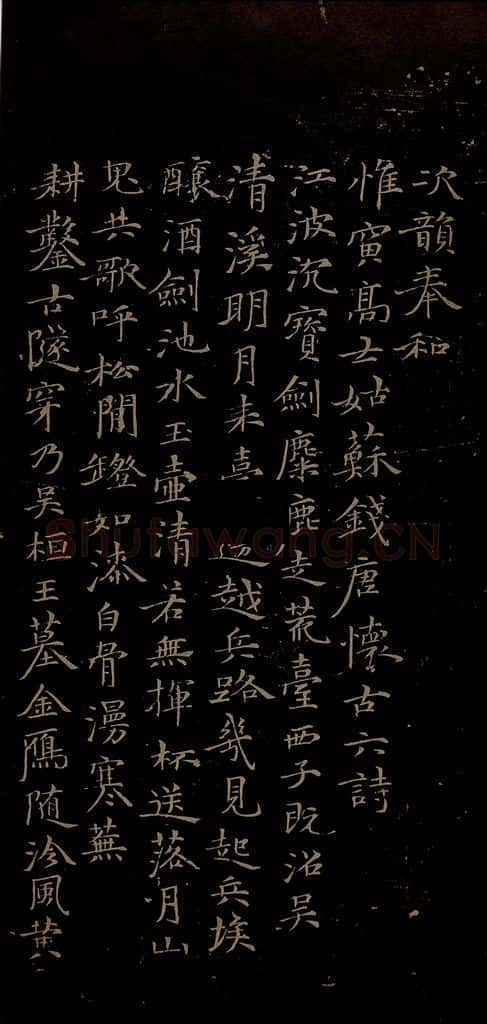 次韻奉和
惟寅髙士姑蘇錢唐懷古六詩
江波沉寶劍麋鹿走荒臺西子既沼吴
清溪明月来熹迎越兵路幾見起兵埃
釀酒劍池水玉壺清若無揮杯送落月山
鬼共歌呼松間鐙如漆白骨漫寒蕪
耕鑿古隧穿乃吴桓王墓金鴈随泠風黄
Shufawang.CN